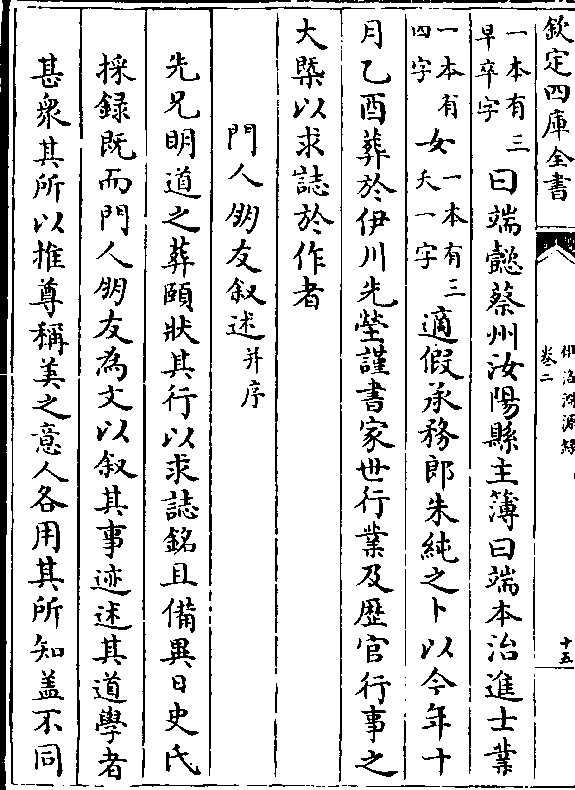 欽定四庫全書
伊洛淵源録
卷二
十五
一本有三
早卒字
曰端懿蔡州汝陽縣主簿曰端本治進士業
一本有
四字
女
一本有三
夭一字
適假承務郎朱純之卜以今年十
月乙酉葬於伊川先塋謹書家世行業及歴官行事之
大槩以求誌於作者
門人朋友叙述并序
先兄明道之葬頤狀其行以求誌銘且備異日史氏
採録既而門人朋友為文以叙其事迹述其道學者
甚衆其所以推尊稱美之意人各用其所知盖不同